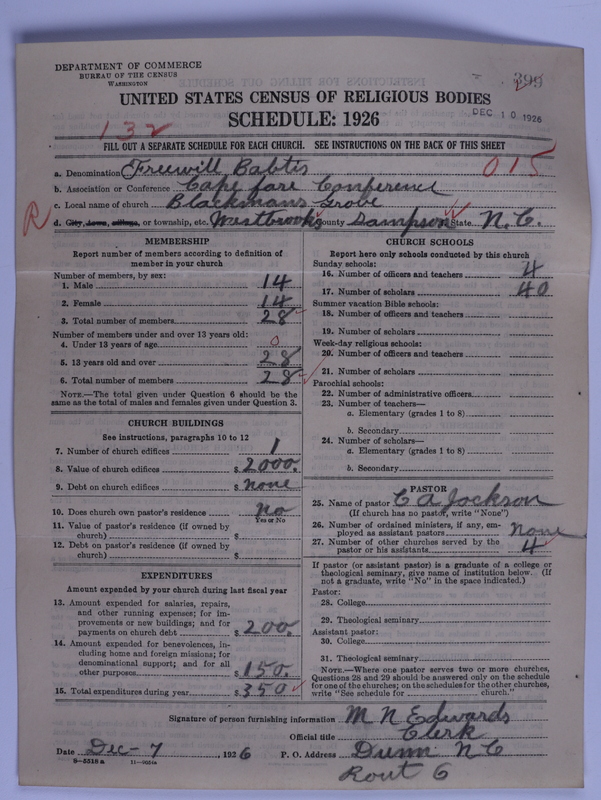 DEPARTMENT OF COMMERCE
BUREAU OF THE CENSUS
WASHINGTON
399
UNITED STATES CENSUS OF RELIGIOUS BODIES
DEC 10 1926
SCHEDULE: 1926
132
FILL OUT A SEPARATE SCHEDULE FOR EACH CHURCH. SEE INSTRUCTIONS ON THE BACK OF THIS SHEET
015
a. Denomination Freewill Babtis
b. Association or Conference Cape fare Conference
c. Local name of church Blackmans Grove
R d. City, town, village, or township, etc. Westbrooks County Sampson State N.C.
MEMBERSHIP
Report number of members according to definition of member in your church
Number of members, by sex:
1. Male 14
2. Female 14
3. Total number of members 28
Number of members under and over 13 years old:
4. Under 13 years of age 0
5. 13 years old and over 28
6. Total number of members 28
NOTE.—The total given under Question 6 should be
same as the total of males and females given under Question 3.
CHURCH BUILDINGS
See instructions, paragraphs 10 to 12
7. Number of church edifices 1
8. Value of church edifices $ 2000.
9. Debt on church edifices $ none
10. Does church own pastor's residence no
Yes or No
11. Value of pastor's residence (if owned by
church) $
12. Debt on pastor's residence (if owned by
church) $
EXPENDITURES
Amount expended by your church during last fiscal year
13. Amount expended for salaries, repairs,
and other running expenses; for im-
provements or new buildings; and for
payments on church debt $ 200.
14. Amount expended for benevolences, in-
cluding home and foreign missions; for
denominational support; and for all
other purposes $ 150.
15. Total expenditures during year $ 350
CHURCH SCHOOLS
Report here only schools conducted by this church
Sunday schools:
16. Number of officers and teachers 4
17. Number of scholars 40
Summer vacation Bible schools:
18. Number of officers and teachers
19. Number of scholars
Week-day religious schools:
20. Number of officers and teachers
21. Number of scholars
Parochial schools:
22. Number of administrative officers
23. Number of teachers—
a. Elementary (grades 1 to 8)
b. Secondary
24. Number of scholars—
a. Elementary (grades 1 to 8)
b. Secondary
PASTOR
25. Name of pastor C A Jackson
(If church has no pastor, write "None")
26. Number of ordained ministers, if any, em-
ployed as assistant pastors None
27. Number of other churches served by the
pastor or his assistants 4
If pastor (or assistant pastor) is a graduate of a college or
theological seminary, give name of institution below. (If
not a graduate, write "No" in the space indicated.)
Pastor:
28. College
29. Theological seminary
Assistant pastor:
30. College
31. Theological seminary
NOTE.—Where one pastor serves two or more churches,
Questions 28 and 29 should be answered only on the schedule
for one of the churches; on the schedules for the other churches,
write "See schedule for church."
Signature of person furnishing information M N Edwards
Official title Clerk
Date Dec-7, 1926 P. O. Address Dunn N C
8-5518 a
Rout 6